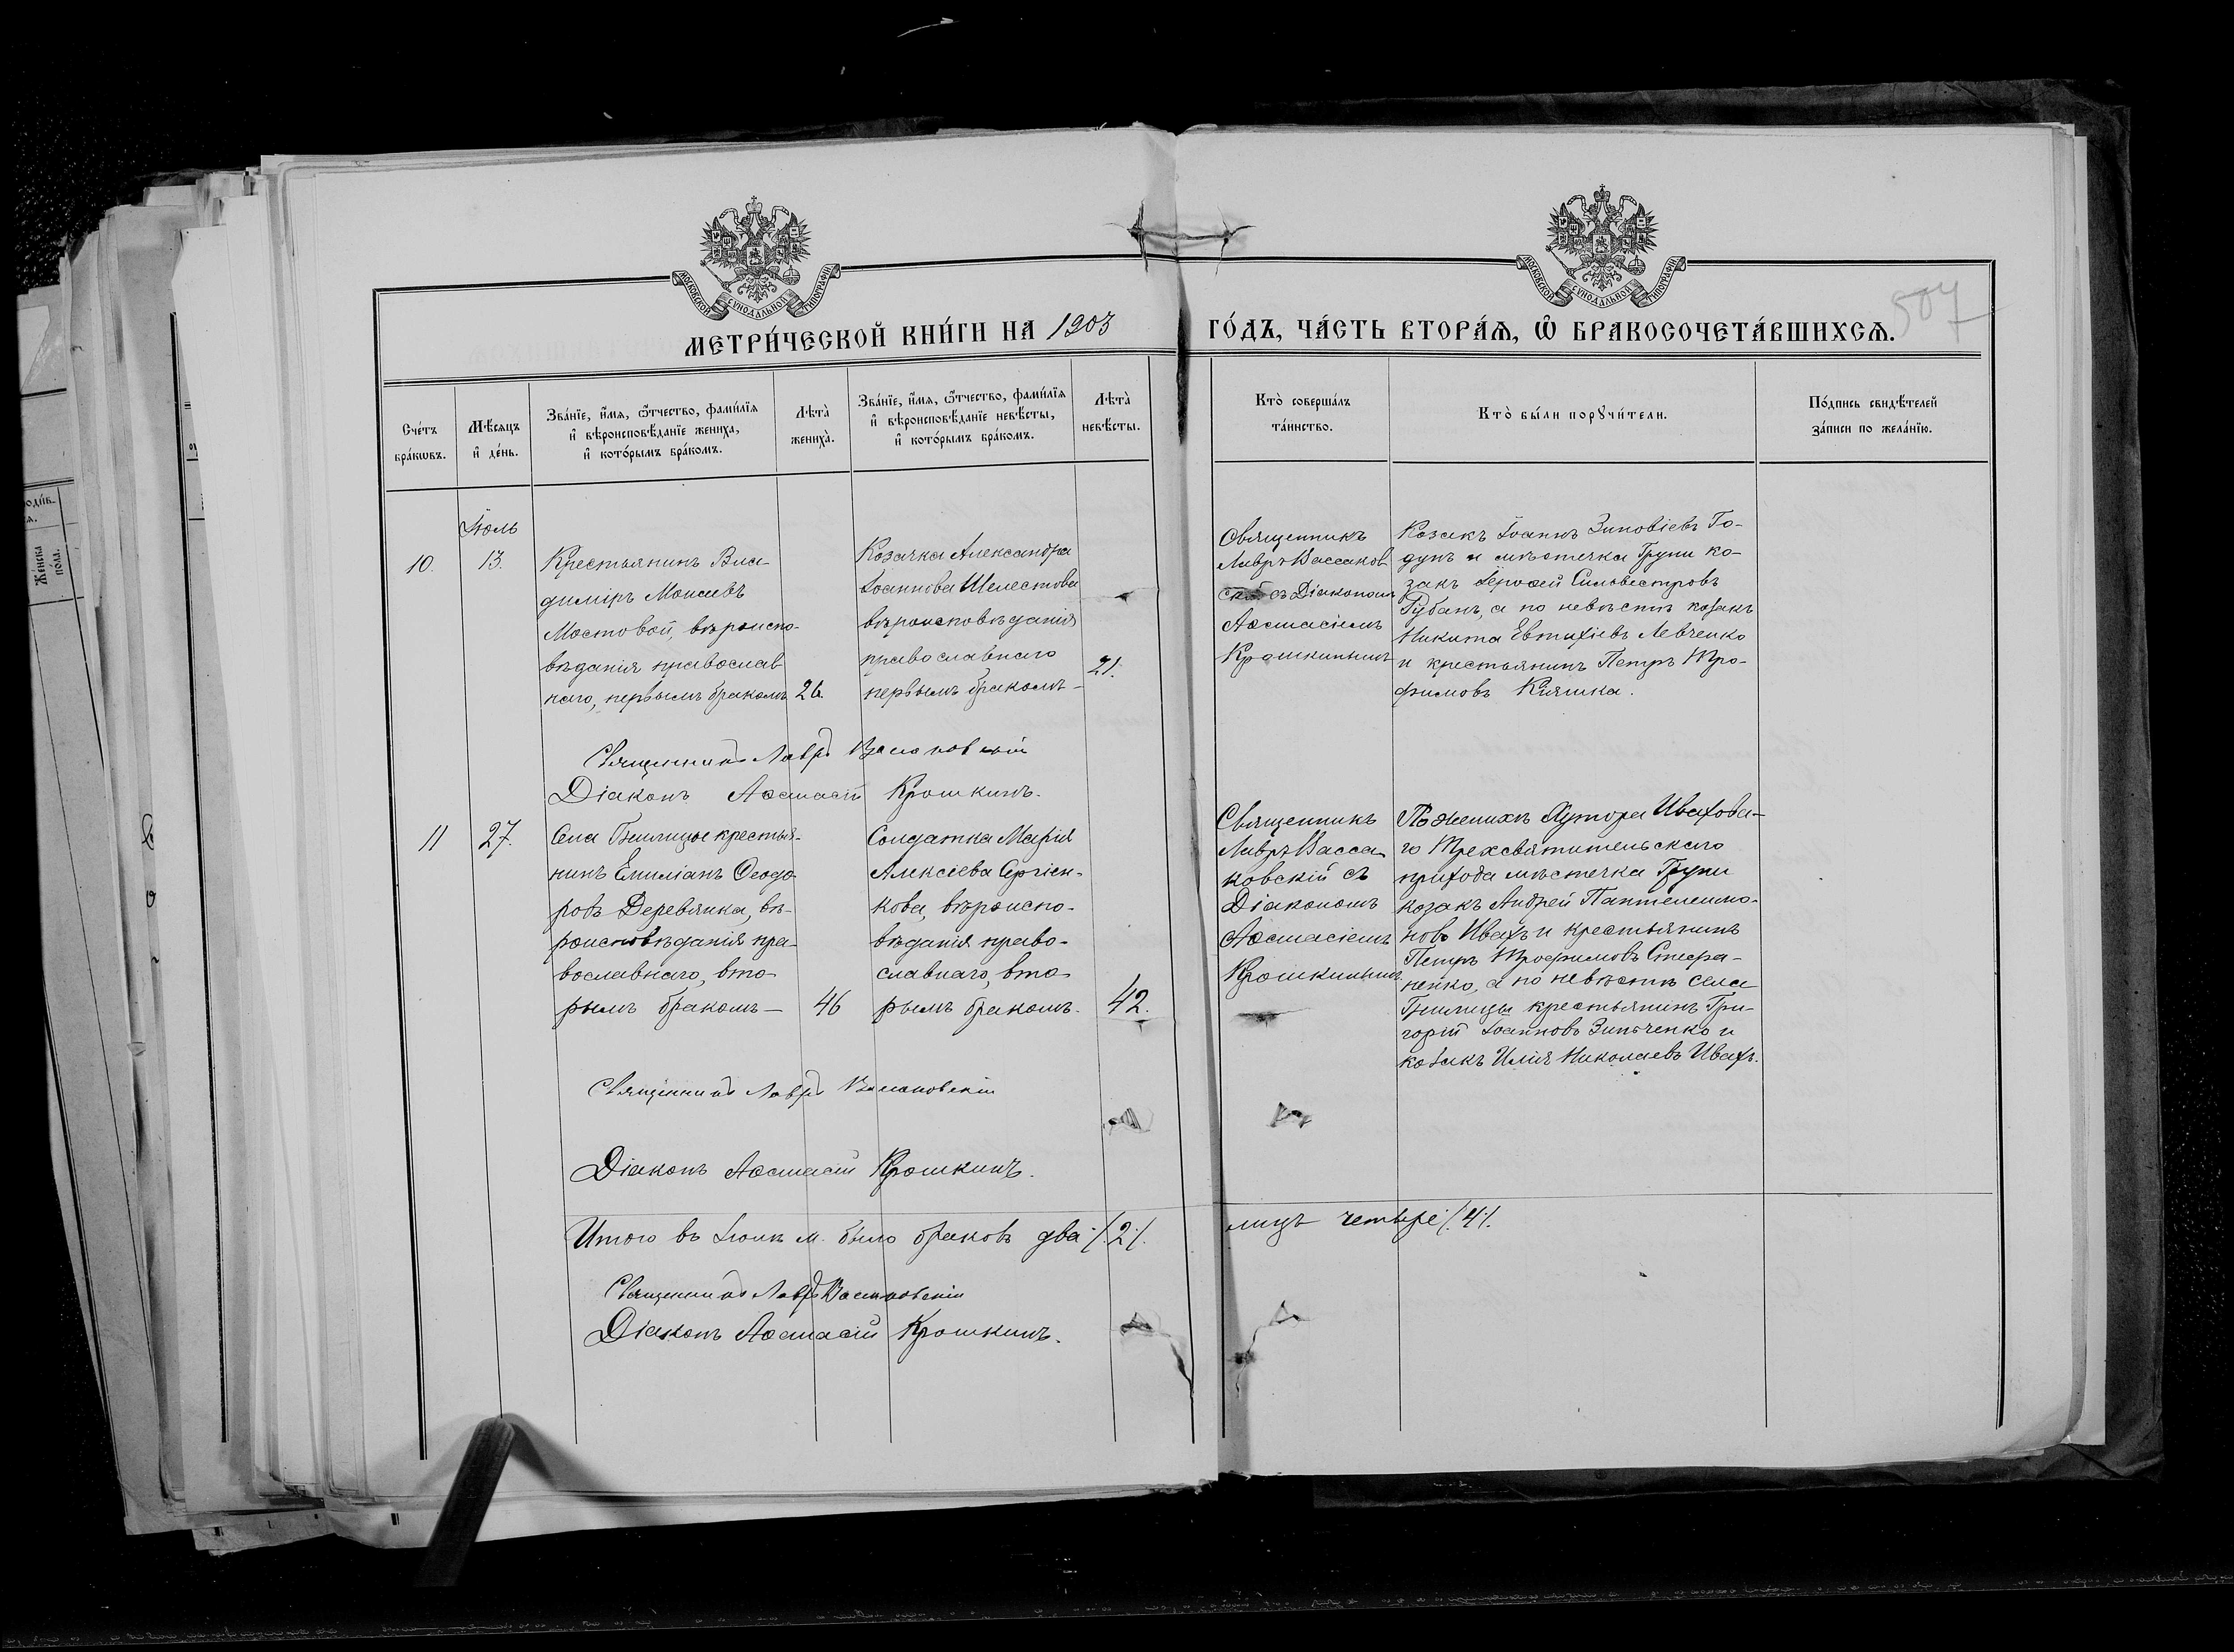 МОСКОВСКОЙ СѴНОДАЛЬНОЙ ТИПОГРАФІИ
МОСКОВСКОЙ СѴНОДАЛЬНОЙ ТИПОГРАФІИ
МЕТРИ́ЧЕСКОЙ КНИ́ГИ НА 1903 ГО́ДЪ, ЧА́СТЬ ВТОРА́Ѧ, Ѽ БРАКОСОЧЕТА́ВШИХСѦ.
507
Сче́тъ
бра́кѡвъ.
Мѣ́сяцъ
и҆ де́нь.
Зва́нїе, и҆́мѧ, ѻ҆́тчество, фами́лїѧ
и҆ вѣроисповѣ́данїе жениха̀,
и҆ кото́рымъ бра́комъ.
Лѣта̀
жениха̀.
Зва́нїе, и҆́мѧ, ѻ҆́тчество, фами́лїѧ
и҆ вѣроисповѣ́данїе невѣ́сты,
и҆ кото́рымъ бра́комъ.
Лѣта̀
невѣ́сты.
Кто̀ соверша́лъ
та́инство.
Кто̀ бы́ли порꙋчи́тели.
По́дпись свидѣ́телей
за́писи по жела́нїю.
Іюль
10.
13.
Крестьянинъ Вла-
диміръ Моисеевъ
Мостовой, вѣроиспо-
вѣданія православ
наго, первымъ бракомъ
26
Козачка Александра
Іоаннова Шелестова
вѣроисповѣданія
православнаго
первымъ бракомъ -
21.
Священникъ
Лавръ Вассаков
скій съ Діакономъ
Аѳанасіемъ
Крошкинымъ
Козакъ Іоаннъ Зиновіевъ Го-
дунъ и мѣстечка Груни ко-
закъ Сергѣй Сильвестровъ
Рубанъ, а по невѣстѣ козакъ
Никита Евтихіевъ Левченко
и крестьянинъ Петръ Тро-
фимовъ Кияшка.
Священникъ Лавръ Вассаковскій
Діаконъ Аѳанасій Крошкинъ.
11
27.
Села Гнилицы крестья-
нинъ Емиліанъ Ѳеодо-
ровъ Деревянка, вѣ-
роисповѣданія пра-
вославнаго, вто-
рымъ бракомъ —
46
Солдатка Марія
Алексіева Сергіен-
кова, вѣроиспо-
вѣданія право-
славнаго, вто-
рымъ бракомъ.
42.
Священникъ
Лавръ Васса
ковскій съ
Діакономъ
Аѳанасіемъ
Крошкинымъ
По женихѣ Хутора Ивахова-
го Трехсвятительскаго
прихода мѣстечка Груни
козакъ Андрей Пантелеимо-
новъ Ивахъ и крестьянинъ
Петръ Трофимовъ Стефа-
ненко, а по невѣстѣ села
Гнилицы крестьянинъ Гри-
горій Іоанновъ Зинченко и
козакъ Илія Николаевъ Ивахъ.
Священникъ Лавръ Вассаковскій
Діаконъ Аѳанасій Крошкинъ.
Итого въ Іюлѣ м. было браковъ два /.2/. лицъ четыре /.4/.
Священникъ Лавръ Вассаковскій
Діаконъ Аѳанасій Крошкинъ.
Же́нска
по́ла.